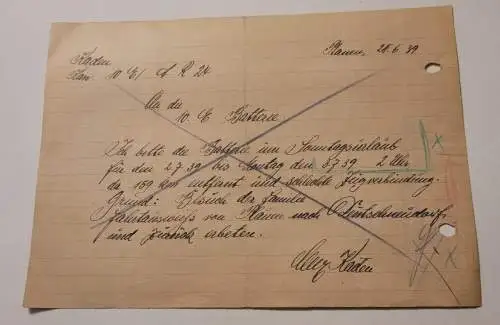 Kaden
Kan. 10 E / A R 24
Plauen, 28.6.39
An die
10. E. Batterie
Ich bitte die Batterie um Sonntagsurlaub
für den 2.7.39 bis Montag den 3.7.39 2 Uhr
da 159 km entfernt und schlechte Zugverbindung.
Grund: Besuch der Familie
Fahrtausweis von Plauen nach
und zurück erbeten.
Kaden